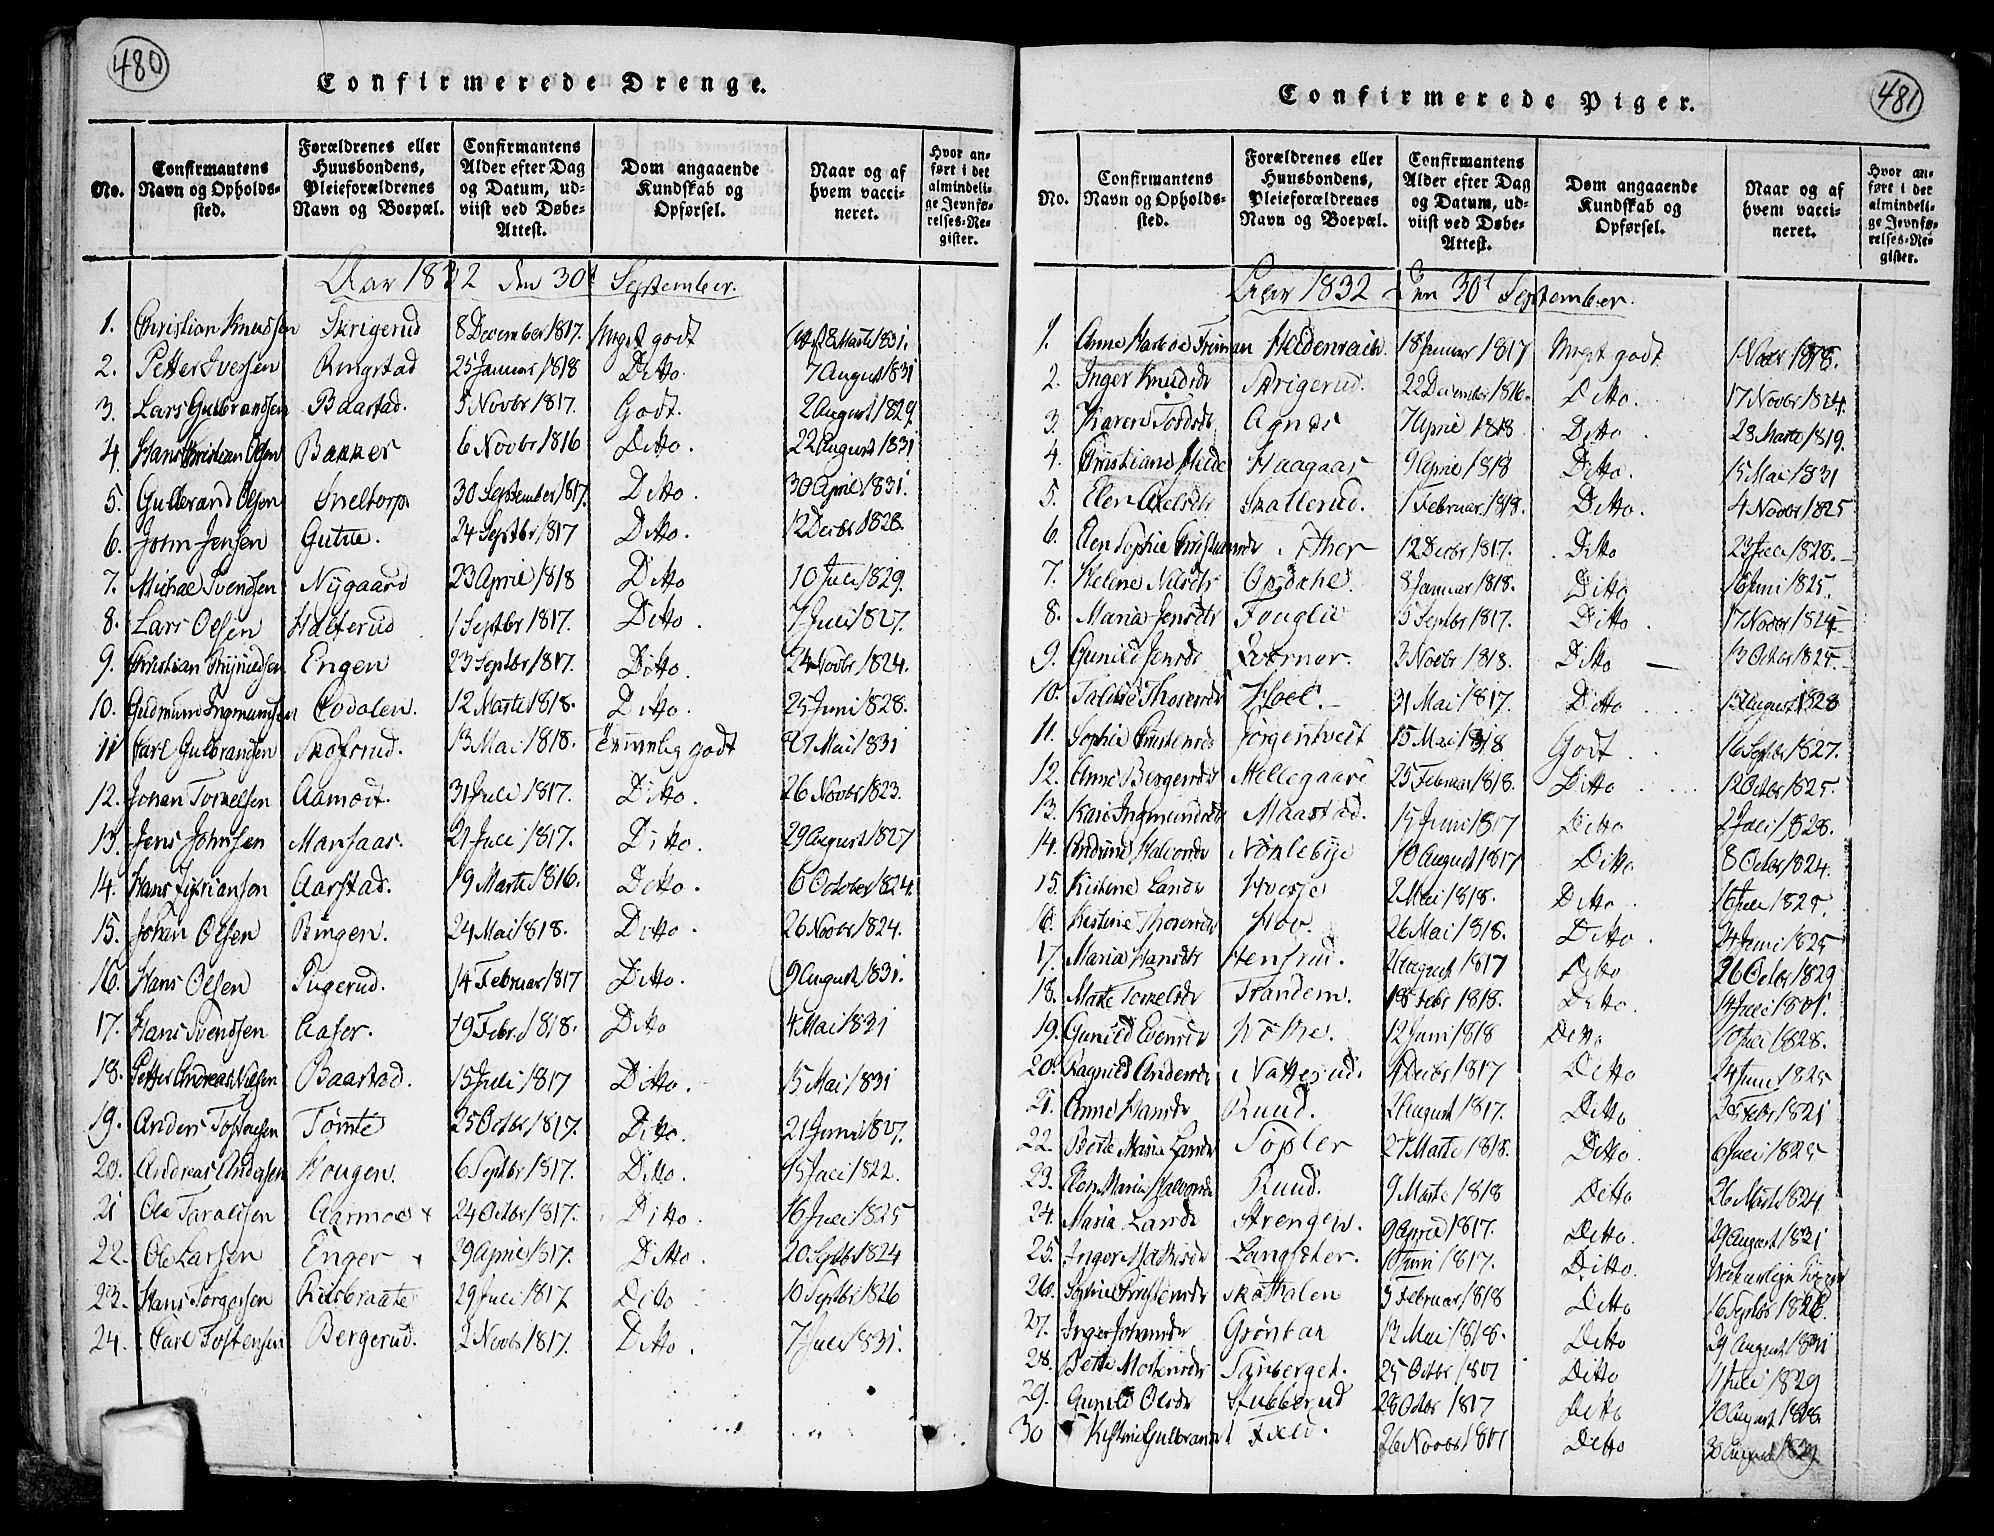 480
Confirmerede Drenge.
No.
Confirmantens Navn og Opholds-sted.
Forældrenes eller Huusbondens, Pleieforældrenes Navn og Boepæl.
Confirmantens Alder efter Dag og Datum, ud-viist ved Døbe-Attest.
Dom angaaende Kundskab og Opførsel.
Naar og af hvem vacci-neret.
Hvor an-ført i det almindeli-ge Jevnfø-relses-Re-gister.
Aar 1832 den 30t September.
1. Christian Knudsen Skrigerud 8 December 1817. Meget godt 8 Marti 1831.
2. Petter Iversen Ringstad 25 Januar 1818 Ditto. 7 August 1831
3. Lars Gulbrandsen Baastad. 5 Novbr 1817. Godt. 2 August 1829
4. Hans Christian Olsen Bakker 6 Novbr 1816 Ditto. 22 August 1831
5. Gulbrand Olsen Sneltorp 30 September 1817. Ditto. 30 April 1831.
6. John Jensen Gutue. 24 Septbr 1817 Ditto. 12 Decbr 1828.
7. Michael Svendsen Nygaard 23 April 1818 Ditto 10 Juli 1829.
8. Lars Olsen Halterud 1 Septbr 1817. Ditto. 7 Juli 1827.
9. Christian Engen 23 Septbr 1817. Ditto. 24 Novbr 1824.
10. Gudmund Ingmundsen Eodalen. 12 Marti 1818. Ditto. 25 Juni 1828.
11 Carl Gulbrandsen Skofsrud. 13 Mai 1818. Temmelig godt 27 Mai 1831
12. Johan Tornelsen Aamodt. 31 Juli 1817. Ditto. 26 Novbr 1823.
13. Jens Johnsen Mansaas. 21 Juli 1817. Ditto. 29 August 1827
14. Hans Siprianson Aarstad. 19 Marti 1816. Ditto. 6 October 1824.
15. Johan Olsen Bingen. 24 Mai 1818. Ditto. 26 Novbr 1824.
16. Hans Olsen Pugerud. 14 Februar 1817 Ditto. 9 August 1831.
17. Hans Svendsen Aaser. 19 Febr. 1818. Ditto 4 Mai 1831
18. Petter Andreas Nilsen Baastad. 15 Juli 1817 Ditto. 15 Mai 1831
19. Anders Tostensen Tømte 25 Octbr 1817. Ditto. 21 Juni 1827.
20. Andreas Andersen Hougen. 6 Septbr 1817. Ditto. 15 Juli 1822.
21 Ole Taraldsen Aarmoe 24 Octbr 1817. Ditto. 16 Juli 1825
22. Ole Larsen Enger 29 April 1817. Ditto. 20 Septbr 1824
23. Hans Torgersen Riisbraate 29 Juli 1817 Ditto 10 Septbr 1826
24. Carl Tostensen Bergerud. 2 Novbr 1817. Ditto. 7 Juli 1831.
481
Confirmerede Piger.
No.
Confirmantens Navn og Opholds-sted.
Forældrenes eller Huusbondens, Pleieforældrenes Navn og Boepæl.
Confirmantens Alder efter Dag og Datum, ud-viist ved Døbe-Attest.
Dom angaaende Kundskab og Opførsel.
Naar og af hvem vacci-neret.
Hvor an-ført i det almindeli-ge Jevnfø-relses-Re-gister.
Aar 1832 Den 30t September.
1. Anne Heidenreich 18 Januar 1817 Meget godt
2. Inger Knudsdr Skrigerud. 22 December 1816. Ditto. 17 Novbr 1824.
3. Karen Tordsdr Agnæs 7 April 1818 Ditto 23 Marti 1819.
4. Christiane Haagaas 9 April 1818 Ditto. 15 Mai 1831
5. Elen Axelsdr Skallerud. 1 Februar 1818. Ditto. 4 Novbr 1825
6. Elen Sophie 12 Decbr 1817. Ditto 23 Juli 1828.
7. Helene Nilsdr Opdahl. 8 Januar 1818. Ditto 16 Juni 1825.
8. Maria Jensdr Fouglie 5 Septbr 1817. Ditto. 17 Novbr 1824
9. Gunild Jensdr Evernør. 3 Novbr 1818. Ditto 13 Octbr 1825.
10. Taline Thoresdr Hoel. 31 Mai 1817. Ditto 15 August 1828
11. Sophie Christensdr Jørgentvedt 15 Mai 1818 Godt. 16 Septbr 1827.
12. Anne Bergersdr Mellegaard 25 Februar 1818. Ditto. 12 Octbr 1825.
13. Kari Ingmundsdr Maastad. 15 Juni 1817 Ditto 2 Juli 1828.
14. Halvorsdr Nordebye 10 August 1817 Ditto 8 Octbr 1824.
15. Kistine Larsdr 2 Mai 1818. Ditto. 16 Juli 1825.
16. Kistine Thoresdr Hov. 26 Mai 1818. Ditto. 24 Juni 1825
17. Maria Hansdr Hensrud. 2 August 1817 Ditto 26 Octbr 1829
18. Marte Tomelsdr Trandem. 18 Febr 1818. Ditto.
19. Gunild Evensdr 12 Juni 1818 Ditto 10 Juli 1828.
20. Ragnild Andersdr Natterud. 9 Decbr 1817 Ditto 24 Juni 1825
21. Anne Hansdr Ruud. 2 August 1817. Ditto 1821
22. Berte Maria Larsdr Topler 27 Marti 1818. Ditto. 6 Juli 1825
23. Elen Maria Halvorsdr Ruud. 9 Marti 1818 Ditto 26 Marti 1824
24. Maria Larsdr Strengen. 9 April 1817. Ditto. 29 August 1831
25. Inger Mathisdr Langsæter. 10 Juni 1817. Ditto.
26. Sophie Christensdr Skathalen 3 Februar 1818 Ditto 16 Septbr 1826
27. Inger Johansdr Grønkan 13 Mai 1818. Ditto 29 August 1831
28. Berte Mortensdr Taraberget. 25 Octbr 1817 Ditto 11 Juli 1829
29. Gunild Olsdr Stubberud 28 Octbr 1817 Ditto 10 August 1828.
30 Kistine Gulbrandsd Field. 26 Novbr 1817 Ditto 30